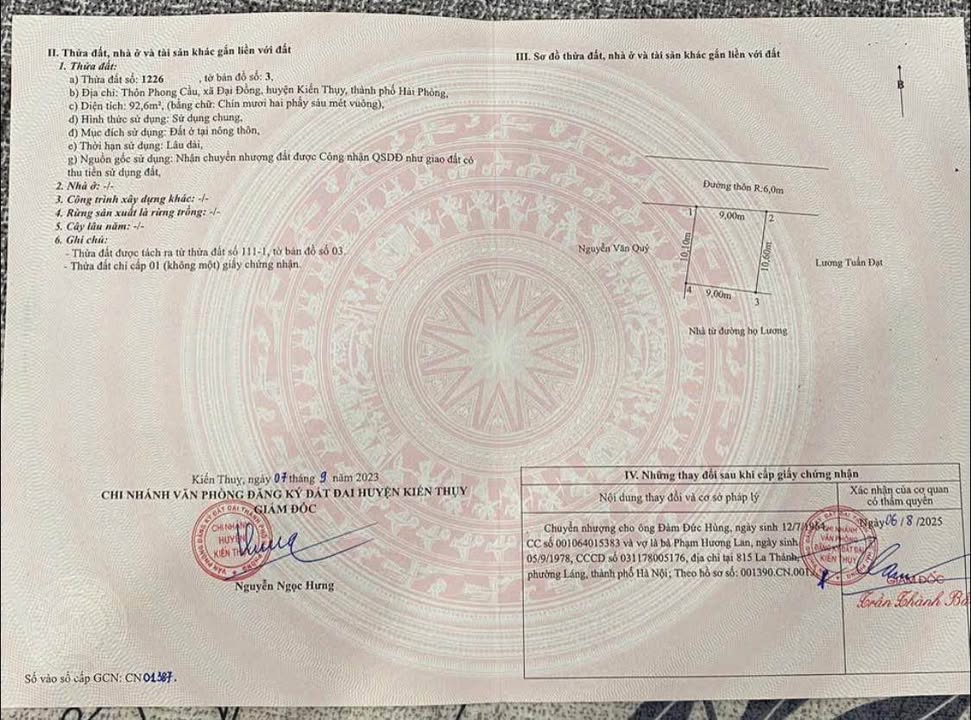 II. Thửa đất, nhà ở và tài sản khác gắn liền với đất
1. Thửa đất:
a) Thửa đất số: 1226 , tờ bản đồ số: 3,
b) Địa chỉ: Thôn Phong Cầu, xã Đại Đồng, huyện Kiến Thụy, thành phố Hải Phòng,
c) Diện tích: 92,6m², (bằng chữ: Chín mươi hai phẩy sáu mét vuông),
d) Hình thức sử dụng: Sử dụng chung,
đ) Mục đích sử dụng: Đất ở tại nông thôn,
e) Thời hạn sử dụng: Lâu dài,
g) Nguồn gốc sử dụng: Nhận chuyển nhượng đất được Công nhận QSDĐ như giao đất có
thu tiền sử dụng đất,
2. Nhà ở: -/-
3. Công trình xây dựng khác: -/-
4. Rừng sản xuất là rừng trồng: -/-
5. Cây lâu năm: -/-
6. Ghi chú:
- Thửa đất được tách ra từ thửa đất số 111-1, tờ bản đồ số 03.
- Thửa đất chỉ cấp 01 (không một) giấy chứng nhận.
Kiến Thụy, ngày 07 tháng 9 năm 2023
CHI NHÁNH VĂN PHÒNG ĐĂNG KÝ ĐẤT ĐAI HUYỆN KIẾN THỤY
GIÁM ĐỐC
CHI NHÁNH
HUYỆN
KIẾN THỤY
Nguyễn Ngọc Hưng
Số vào sổ cấp GCN: CN 01387.
III. Sơ đồ thửa đất, nhà ở và tài sản khác gắn liền với đất
B
Đường thôn R:6,0m
1 9,00m 2
Nguyễn Văn Quý 10,10m 10,60m Lương Tuấn Đạt
4 9,00m 3
Nhà từ đường họ Lương
IV. Những thay đổi sau khi cấp giấy chứng nhận
Nội dung thay đổi và cơ sở pháp lý
Xác nhận của cơ quan
có thẩm quyền
Chuyển nhượng cho ông Đàm Đức Hùng, ngày sinh 12/7/1964,
CC số 001064015383 và vợ là bà Phạm Hương Lan, ngày sinh
05/9/1978, CCCD số 031178005176, địa chỉ tại 815 La Thành,
phường Láng, thành phố Hà Nội; Theo hồ sơ số: 001390.CN.001
Ngày 06/8/2025
CHI NHÁNH
VĂN PHÒNG
ĐĂNG KÝ ĐẤT ĐAI
KIẾN THỤY
GIÁM ĐỐC
Trần Thành